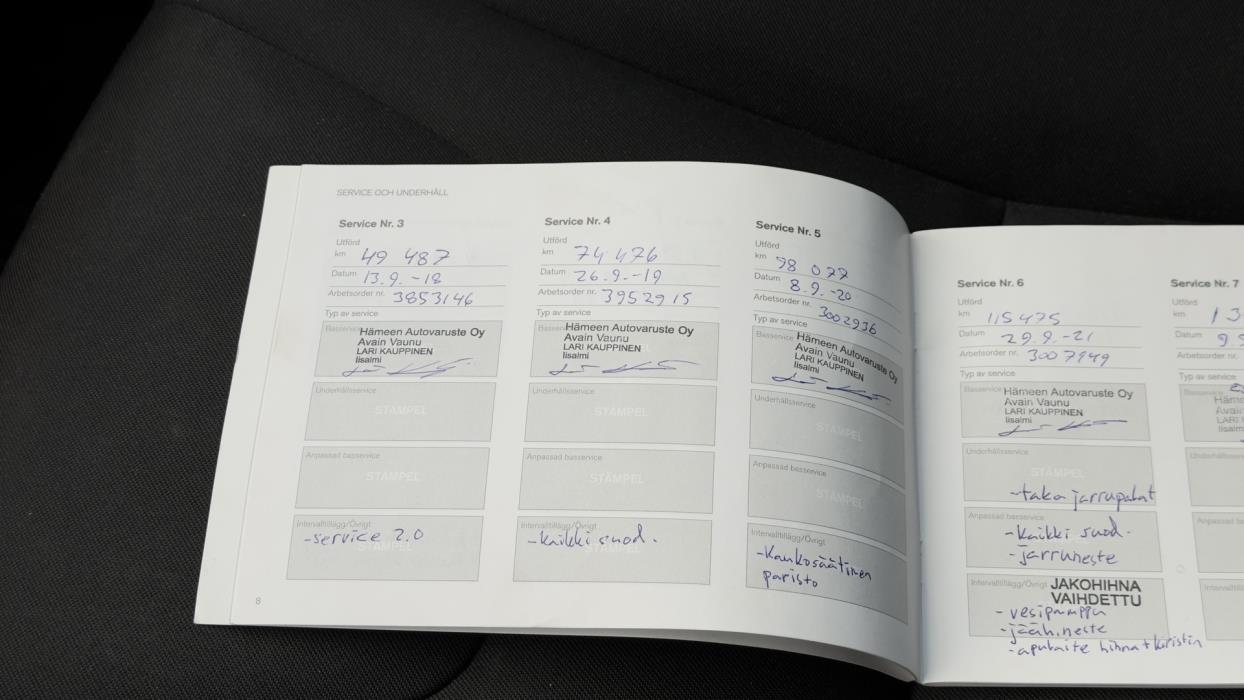 SERVICE OCH UNDERHÅLL
Service Nr. 3
Utförd
km 49 487
Datum 13.9.-18
Arbetsorder nr. 3853146
Typ av service
Basservice
Hämeen Autovaruste Oy
Avain Vaunu
LARI KAUPPINEN
Iisalmi
Underhållsservice
STÄMPEL
Anpassad basservice
STÄMPEL
Intervalltillägg/Övrigt
-service 2.0
STÄMPEL
8
Service Nr. 4
Utförd
km 74 476
Datum 26.9.-19
Arbetsorder nr. 3952915
Typ av service
Hämeen Autovaruste Oy
Avain Vaunu
LARI KAUPPINEN
Iisalmi
Underhållsservice
STÄMPEL
Anpassad basservice
STÄMPEL
Intervalltillägg/Övrigt
-kaikki suod.
STÄMPEL
Service Nr. 5
Utförd
km 98 077
Datum 8.9.-20
Arbetsorder nr. 3002936
Typ av service
Basservice
Hämeen Autovaruste Oy
Avain Vaunu
LARI KAUPPINEN
Iisalmi
Underhållsservice
STÄMPEL
Anpassad basservice
STÄMPEL
Intervalltillägg/Övrigt
-Kaukosäätimen
paristo
Service Nr. 6
Utförd
km 115475
Datum 29.9.-21
Arbetsorder nr. 3007949
Typ av service
Basservice
Hämeen Autovaruste Oy
Avain Vaunu
LARI KAUPPINEN
Iisalmi
Underhållsservice
STÄMPEL
-takajarrupalat
Anpassad basservice
-kaikki suod.
-jarruneste
Intervalltillägg/Övrigt
JAKOHIHNA
VAIHDETTU
-vesipumppu
-jäähneste
-apulaite hihna+kiristin
Service Nr. 7
Utförd
km 13
Datum 9.
Arbetsorder nr.
Typ av service
Basservice